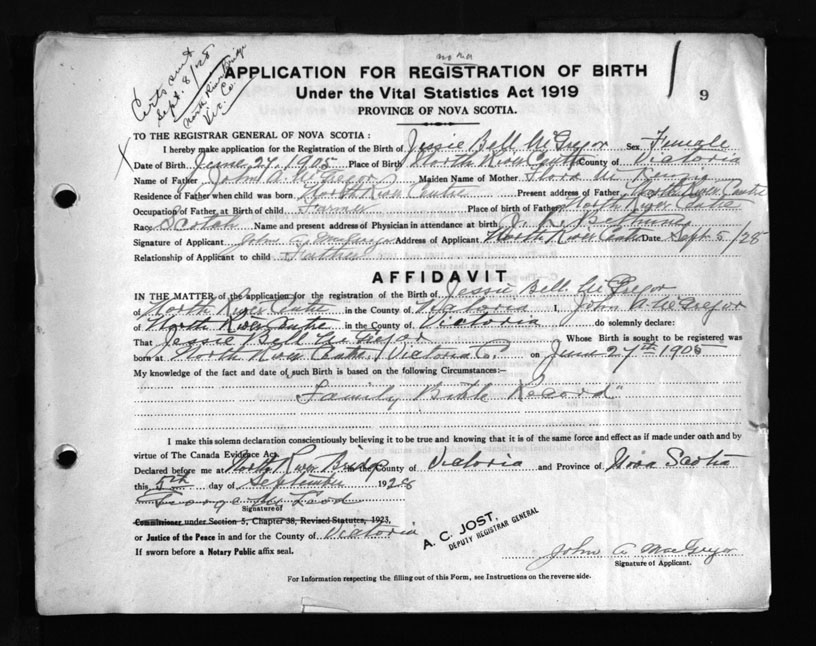 Certs sent
Sept. 8/28
North River Bridge
Vic. Co.
APPLICATION FOR REGISTRATION OF BIRTH
Under the Vital Statistics Act 1919
PROVINCE OF NOVA SCOTIA.
9
TO THE REGISTRAR GENERAL OF NOVA SCOTIA :
I hereby make application for the Registration of the Birth of Jessie Bell McGregor Sex Female
Date of Birth June 27, 1905 Place of Birth North River Centre County of Victoria
Name of Father John A. McGregor Maiden Name of Mother Flora
Residence of Father when child was born North River Centre Present address of Father North River Centre
Occupation of Father at Birth of child Farmer Place of birth of Father North River Centre
Race Scotch Name and present address of Physician in attendance at birth J. R. Bethune
Signature of Applicant John A. MacGregor Address of Applicant North River Centre Date Sept 5/28
Relationship of Applicant to child Father
AFFIDAVIT
IN THE MATTER of the application for the registration of the Birth of Jessie Bell McGregor
of North River Centre in the County of Victoria I, John A. McGregor
of North River Centre in the County of Victoria do solemnly declare:
That Jessie Bell McGregor Whose Birth is sought to be registered was
born at North River Centre, Victoria Co. on June 27th 1905
My knowledge of the fact and date of such Birth is based on the following Circumstances:—
"Family Bible Record"
I make this solemn declaration conscientiously believing it to be true and knowing that it is of the same force and effect as if made under oath and by
virtue of The Canada Evidence Act.
Declared before me at North River Bridge in the County of Victoria and Province of Nova Scotia
this 5th day of September 1928
George McLeod
Signature of
Commissioner under Section 5, Chapter 38, Revised Statutes, 1923,
or Justice of the Peace in and for the County of Victoria
If sworn before a Notary Public affix seal.
A. C. JOST.
DEPUTY REGISTRAR GENERAL
John A MacGregor
Signature of Applicant.
For Information respecting the filling out of this Form, see Instructions on the reverse side.